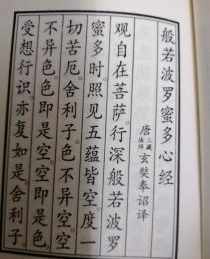 般若波罗蜜多心经
唐三藏法师玄奘奉诏译
观自在菩萨行深般若波罗
蜜多时照见五蕴皆空度一
切苦厄舍利子色不异空空
不异色色即是空空即是色
受想行识亦复如是舍利子